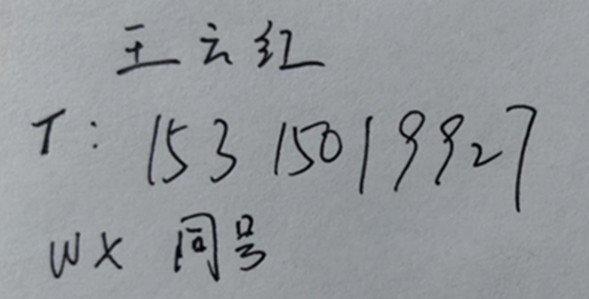 王云红
T: 153 1501 9927
WX 同号